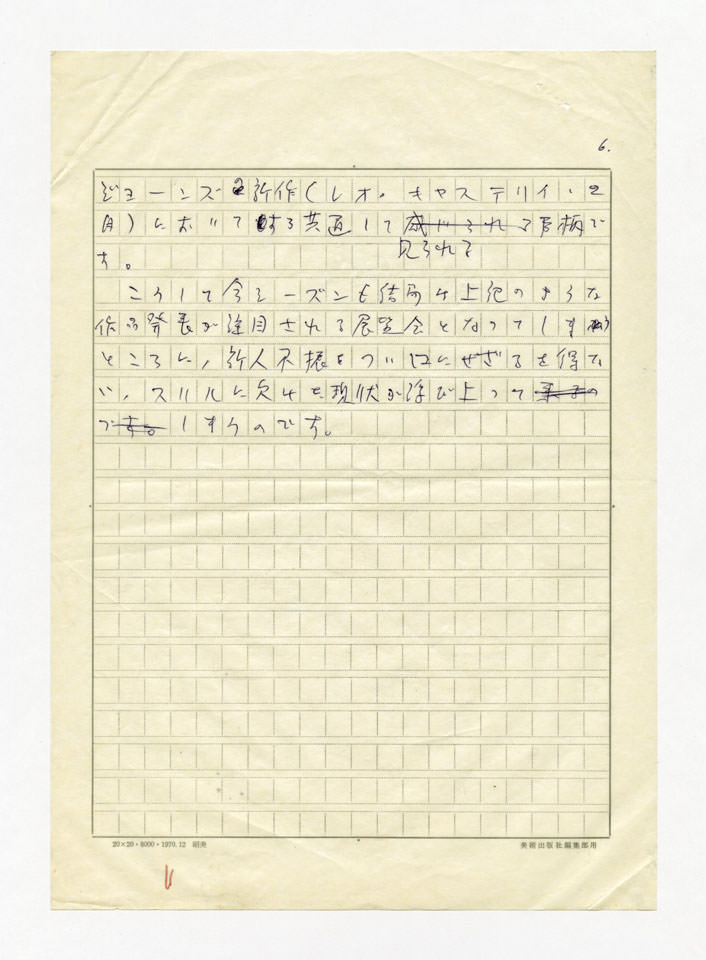 6.
ジョーンズの新作(レオ・キャステリイ・2
月)において する共通して感じられる事柄で
見られる
す。
こうして今シーズンも結局は上記のような
作品発表が注目される展覧会となってしまう
ところに、新人不振をつい口にせざるを得な
い、スリルに欠けた現状が浮び上って
です。しまうのです。
20×20・8000・1970.12 昭美
美術出版社編集部用